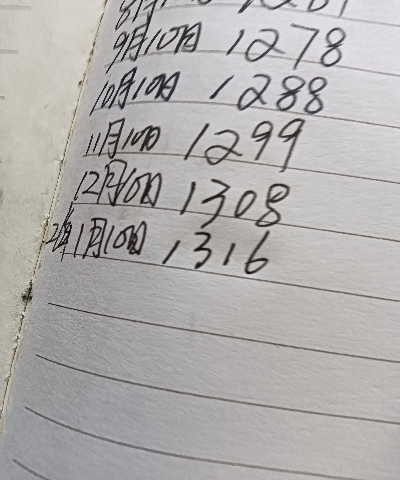 9月10日 1278
10月10日 1288
11月10日 1299
12月10日 1308
1月10日 1316